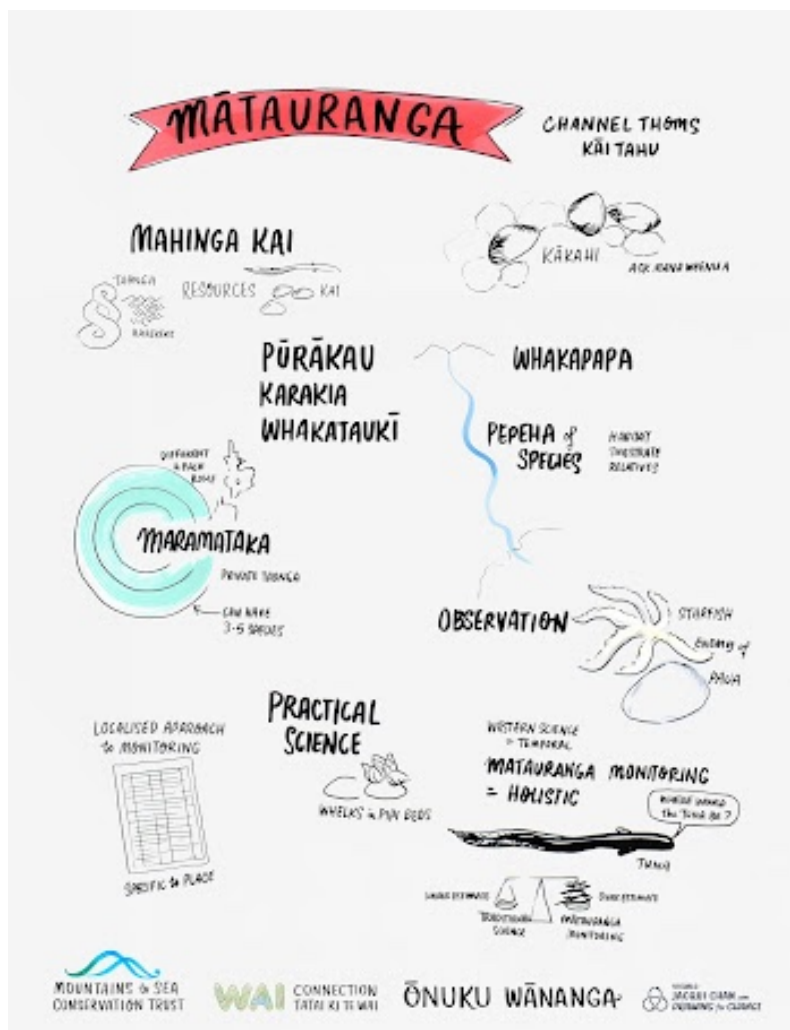 MĀTAURANGA
CHANNEL THOMS
KĀI TAHU
MAHINGA KAI
TAONGA
RESOURCES
KAI
KĀKAHI
ASK MANA WHENUA
PŪRĀKAU
KARAKIA
WHAKATAUKĪ
WHAKAPAPA
PEPEHA of
SPECIES
HABITAT
SUBSTRATE
RELATIVES
DIFFERENT
4 EACH
ROHE
MARAMATAKA
PRIVATE TAONGA
CAN HAVE
3-5 SPECIES
OBSERVATION
STARFISH
ENEMY of
PAUA
PRACTICAL
SCIENCE
LOCALISED APPROACH
to MONITORING
SPECIFIC to PLACE
WHELKS in PIPI BEDS
WESTERN SCIENCE
= TEMPORAL
MATAURANGA MONITORING
= HOLISTIC
WHERE WOULD
the TUNA BE?
TUNA
UNDERESTIMATE
OVERESTIMATE
TRADITIONAL
SCIENCE
MĀTAURANGA
MONITORING
MOUNTAINS to SEA
CONSERVATION TRUST
WAI CONNECTION
TATAI KI TE WAI
ŌNUKU WĀNANGA
JACQUI CHAN
DRAWING for CHANGE